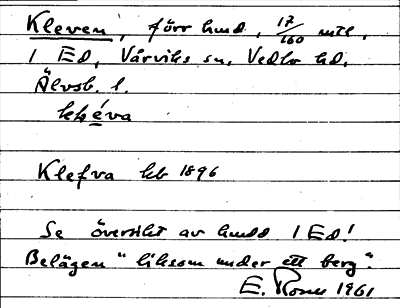 Kleven, förr hmd, 17/160 mtl,
1 Ed, Vårviks sn, Vedbo hd,
Älvsb. l.
kléva
Klefva kb 1896
Se översikt av hmdd 1 Ed!
Belägen "liksom under ett berg".
E. Rosen 1961